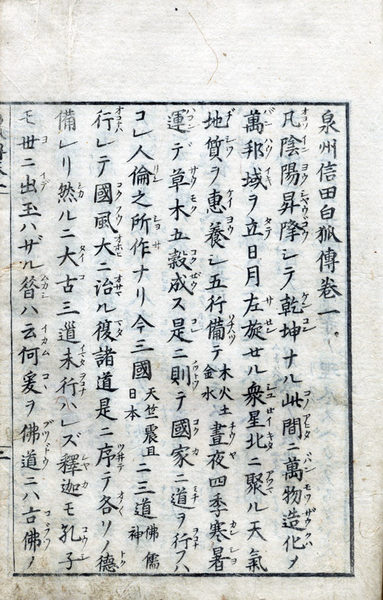 泉州信田白狐傳卷一
凡陰陽昇降シテ乾坤ナル此間ニ萬物造化ノ
萬邦域ヲ立日月左旋セル衆星北ニ聚ル天氣
地質ヲ惠養シ五行備テ木火土金水晝夜四季寒暑
運デ草木五穀成ス是ニ則テ國家ニ道ヲ行ハ
コレ人倫之所作ナリ今三國天竺震旦日本ニ三道佛儒神
行レテ國風大ニ治ル復諸道是ニ序テ各リノ德
備レリ然ルニ大古三道未行ハレズ釋迦モ孔子
モ世ニ出玉ハザル昝ハ云何爰ヲ佛道ニハ古佛ノ